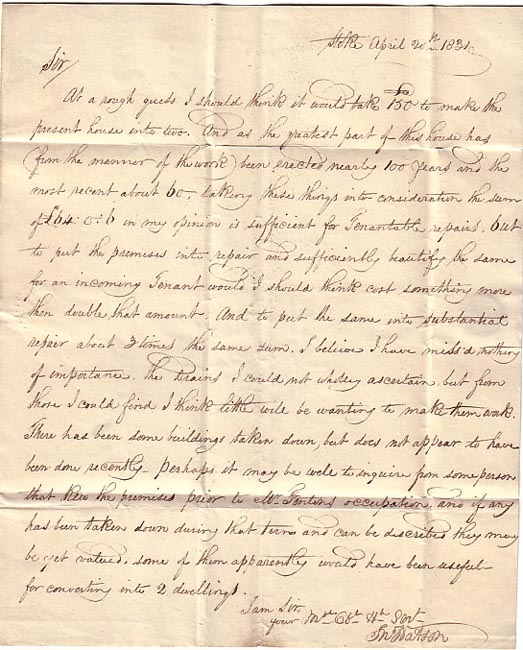 Stoke April 20th 1831
Sir/
At a rough guess I should think it would take £150 to make the
present house into two. And as the greatest part of this house has
(from the manner of the work) been erected nearly 100 years and the
most recent about 60, taking these things into consideration the sum
of £64:0:6 in my opinion is sufficient for Tenantable repairs, but
to put the premises into repair and sufficiently beautify the same
for an incoming Tenant would I should think cost something more
then double that amount. And to put the same into substantial
repair about 3 times the same sum. I believe I have miss'd nothing
of importance. the Drains I could not wholey ascertain, but from
those I could find I think little will be wanting to make them work.
There has been some buildings taken down, but does not appear to have
been done recently - perhaps it may be well to inquire from some person
that knew the premises prior to Mr. occupation, and if any
has been taken down during that time and can be described they may
be yet valued, some of them apparently would have been useful
for converting into 2 dwellings.
I am Sir
your Mo. Obt. Hu. Servt.
Jno Watson